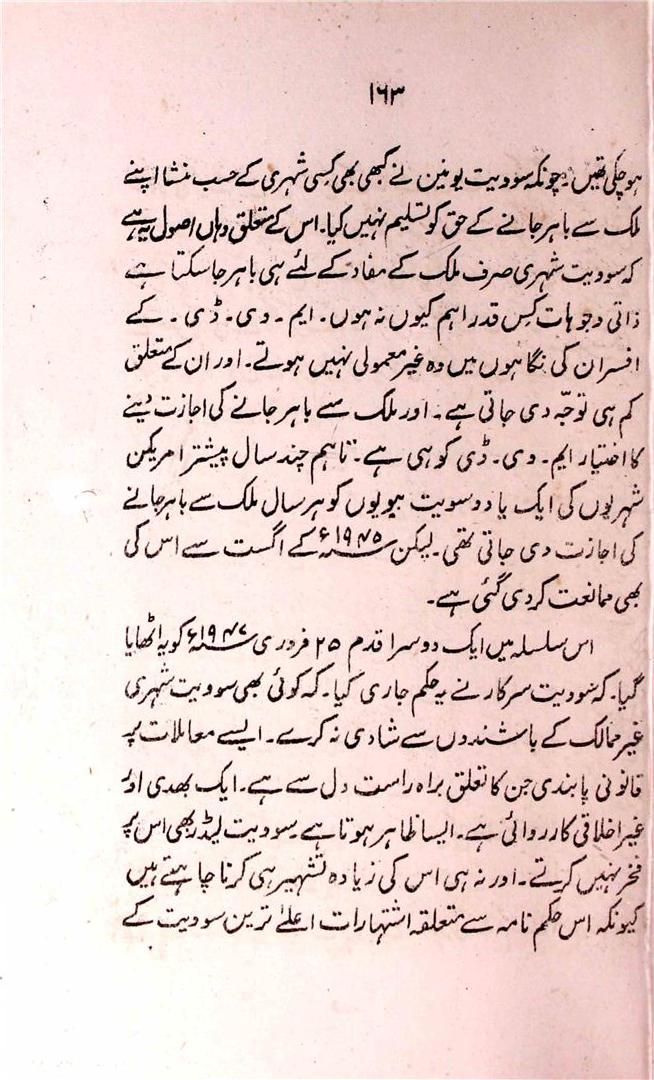 ۱۶۳
ہو چکی تھیں۔ چونکہ سوویت یونین نے کبھی بھی کسی شہری کے حسب منشا اپنے
ملک سے باہر جانے کے حق کو تسلیم نہیں کیا۔ اس کے متعلق وہاں اصول یہ ہے
کہ سوویت شہری صرف ملک کے مفاد کے لئے ہی باہر جا سکتا ہے
ذاتی وجوہات کس قدر اہم کیوں نہ ہوں۔ ایم۔ وی۔ ڈی۔ کے
افسران کی نگاہوں میں وہ غیر معمولی نہیں ہوتے۔ اور ان کے متعلق
کم ہی توجّہ دی جاتی ہے۔ اور ملک سے باہر جانے کی اجازت دینے
کا اختیار ایم۔ وی۔ ڈی کو ہی ہے۔ تاہم چند سال پیشتر امریکن
شہریوں کی ایک یا دو سویت بیویوں کو ہر سال ملک سے باہر جانے
کی اجازت دی جاتی تھی۔ لیکن ۱۹۴۵ء کے اگست سے اس کی
بھی ممانعت کر دی گئی ہے۔
اس سلسلہ میں ایک دوسرا قدم ۲۵ فروری ۱۹۴۷ء کو یہ اٹھایا
گیا۔ کہ سوویت سرکار نے یہ حکم جاری کیا۔ کہ کوئی بھی سوویت شہری
غیر ممالک کے باشندوں سے شادی نہ کرے۔ ایسے معاملات پر
قانونی پابندی جن کا تعلق براہ راست دل سے ہے۔ ایک بھدی اور
غیر اخلاقی کارروائی ہے۔ ایسا ظاہر ہوتا ہے سوویت لیڈر بھی اس پر
فخر نہیں کرتے۔ اور نہ ہی اس کی زیادہ تشہیر ہی کرنا چاہتے ہیں
کیونکہ اس حکم نامہ سے متعلقہ اشتہارات اعلےٰ ترین سوویت کے